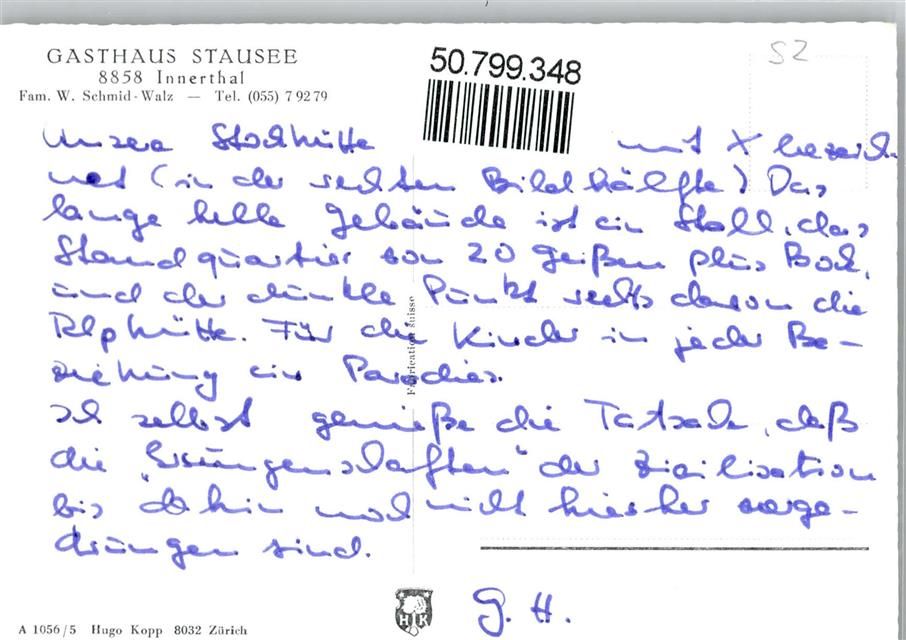 GASTHAUS STAUSEE
8858 Innerthal
Fam. W. Schmid-Walz — Tel. (055) 7 92 79
50.799.348
SZ
Unsere Stockhütte mit X bezeich
net (in der rechten Bildhälfte) Das
lange helle Gebäude ist ein Stall, das
Standquartier von 20 Geißen plus Bock,
und der dunkle Punkt rechts davon die
Alphütte. Für die Kinder in jeder Be-
ziehung ein Paradies.
Ich selbst genieße die Tatsache, daß
die "Errungenschaften" der Zivilisation
bis dahin noch nicht hierher vorge-
drungen sind.
Fabrication suisse
G. H.
HK
A 1056/5 Hugo Kopp 8032 Zürich